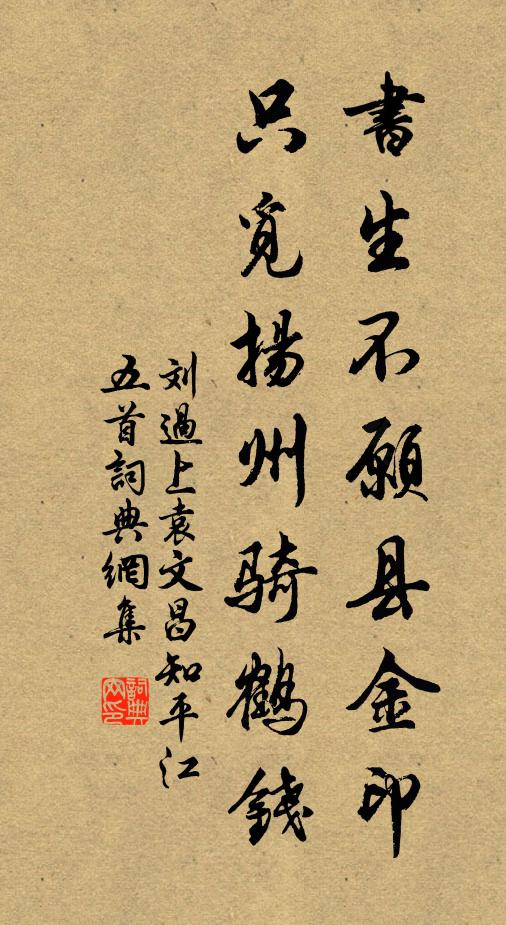 書生不願县金印
只覓揚州騎鶴錢
刘過上袁文昌知平江
五首詞典網集
詞典網印